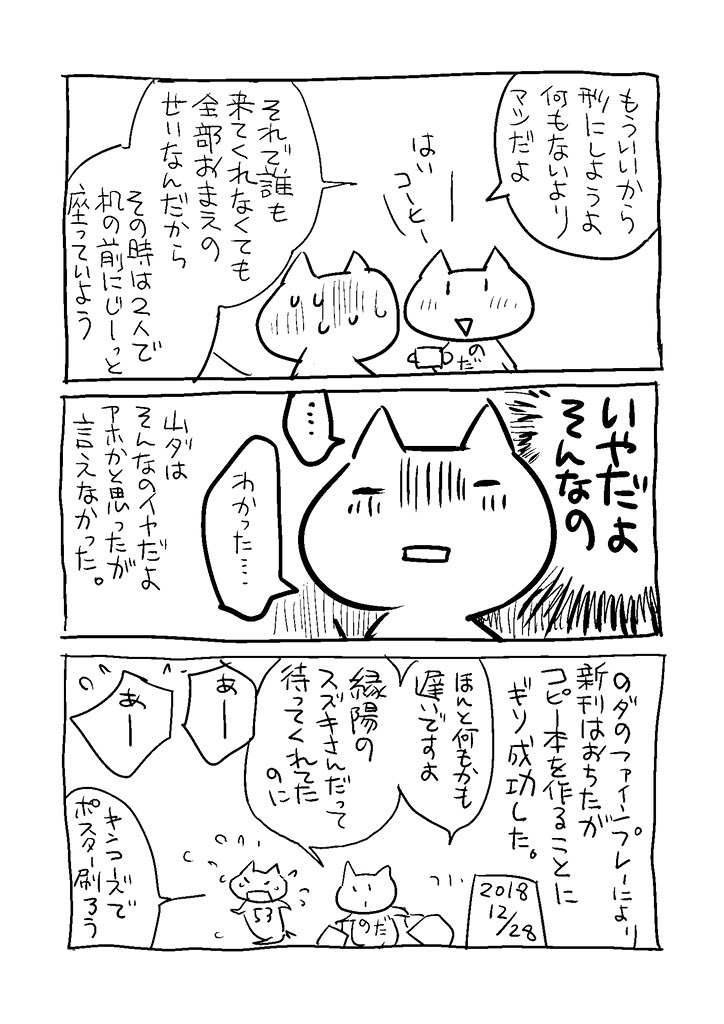 もういいから
形にしようよ
何もないより
マシだよ
はい
コーヒー
それで誰も
来てくれなくても
全部おまえの
せいなんだから
その時は2人で
机の前にじーっと
座っていよう
のだ
いやだよ
そんなの
……
わかった……
山ダは
そんなのイヤだよ
アホかと思ったが
言えなかった。
のダのファインプレーにより
新刊はおちたが
コピー本を作ることに
ギリ成功した。
2018
12/28
ほんと何もかも
遅いですよ
縁陽の
スズキさんだって
待ってくれてた
のに
のだ
あー
あー
53
キンコーズで
ポスター刷ろう